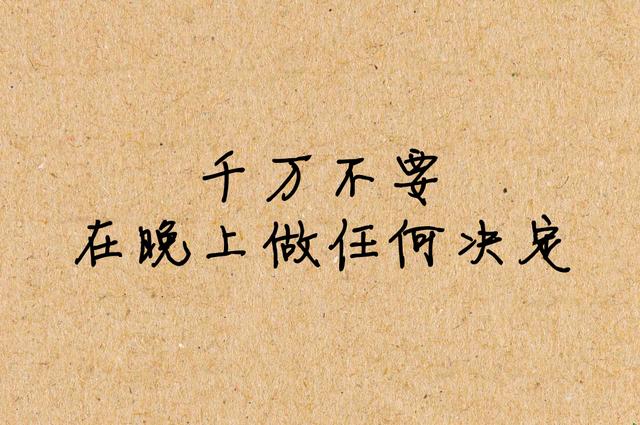 千万不要
在晚上做任何决定